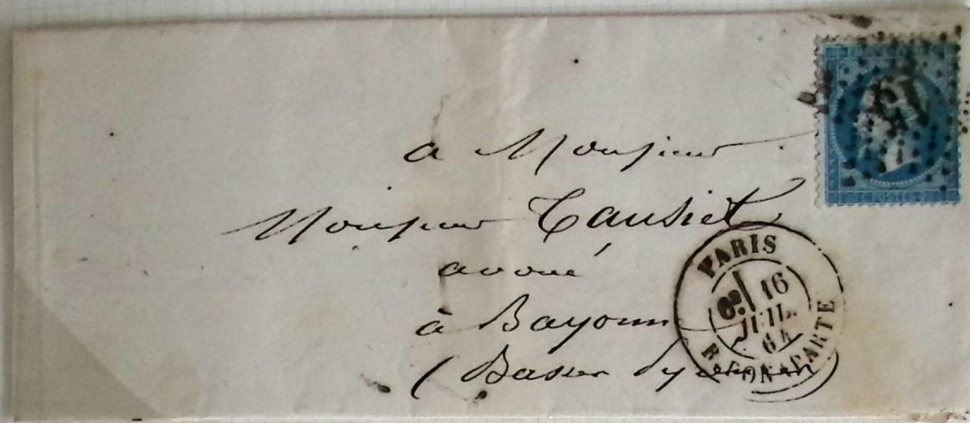 à Monsieur
Monsieur Tausiet
avoué
à Bayonne
(Basses Pyrénées)
PARIS
6E
16
JUIL.
64
R. BONAPARTE
15
POSTES